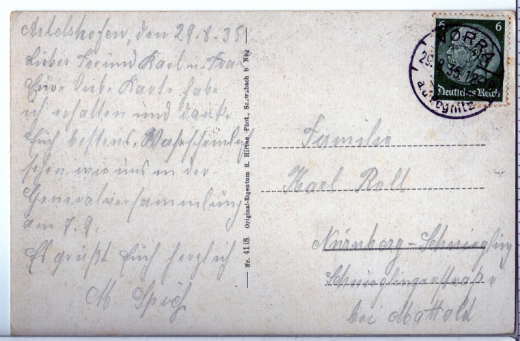 Artelshofen, den 29.8.35
Lieber Freund Karl u. Frau
Eure liebe Karte habe
ich erhalten und danke
Euch bestens. Wahrscheinlich
sehen wir uns in der
Generalversammlung
am 7.9.
Es grüßt Euch herzlich
M
Nr. 418 Original-Eigentum u. Phot., Schwabach b. Nbg
6 6
Deutsches Reich
Pegnitz
Familie
Karl Roll
Nürnberg-Schniegling
Schnieglingerstraße
bei